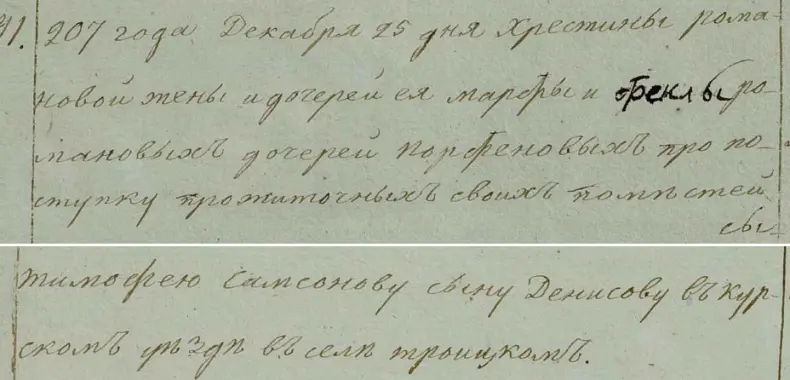 31. 207 года Декабря 25 дня Хрестины рома-
новой жены и дочерей ея марфы и феклы ро-
мановыхъ дочерей Порфеновыхъ про по-
ступку прожиточныхъ своихъ помѣстей
сы-
тимофею Самсонову сыну Денисову въ Кур-
скомъ уѣздѣ въ селѣ троицкомъ.